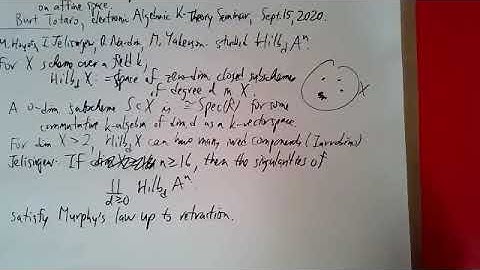 on affine space.
Burt Totaro, electronic Algebraic K-Theory Seminar, Sept. 15, 2020.
M. Hoyois, J. Jelisiejew, D. Nardin, M. Yakerson studied Hilb_d A^n.
For X scheme over a field k,
Hilb_d X := space of zero-dim. closed subscheme
of degree d in X.
X
A 0-dim. subscheme S⊂X is ≅ Spec(R) for some
commutative k-algebra of dim. d as a k-vector space
For dim X > 2, Hilb_d X can have many irred. components (Iarrobino)
Jelisiejew: If n ≥ 16, then the singularities of
∐ Hilb_d A^n
d≥0
satisfy Murphy's law up to retraction.